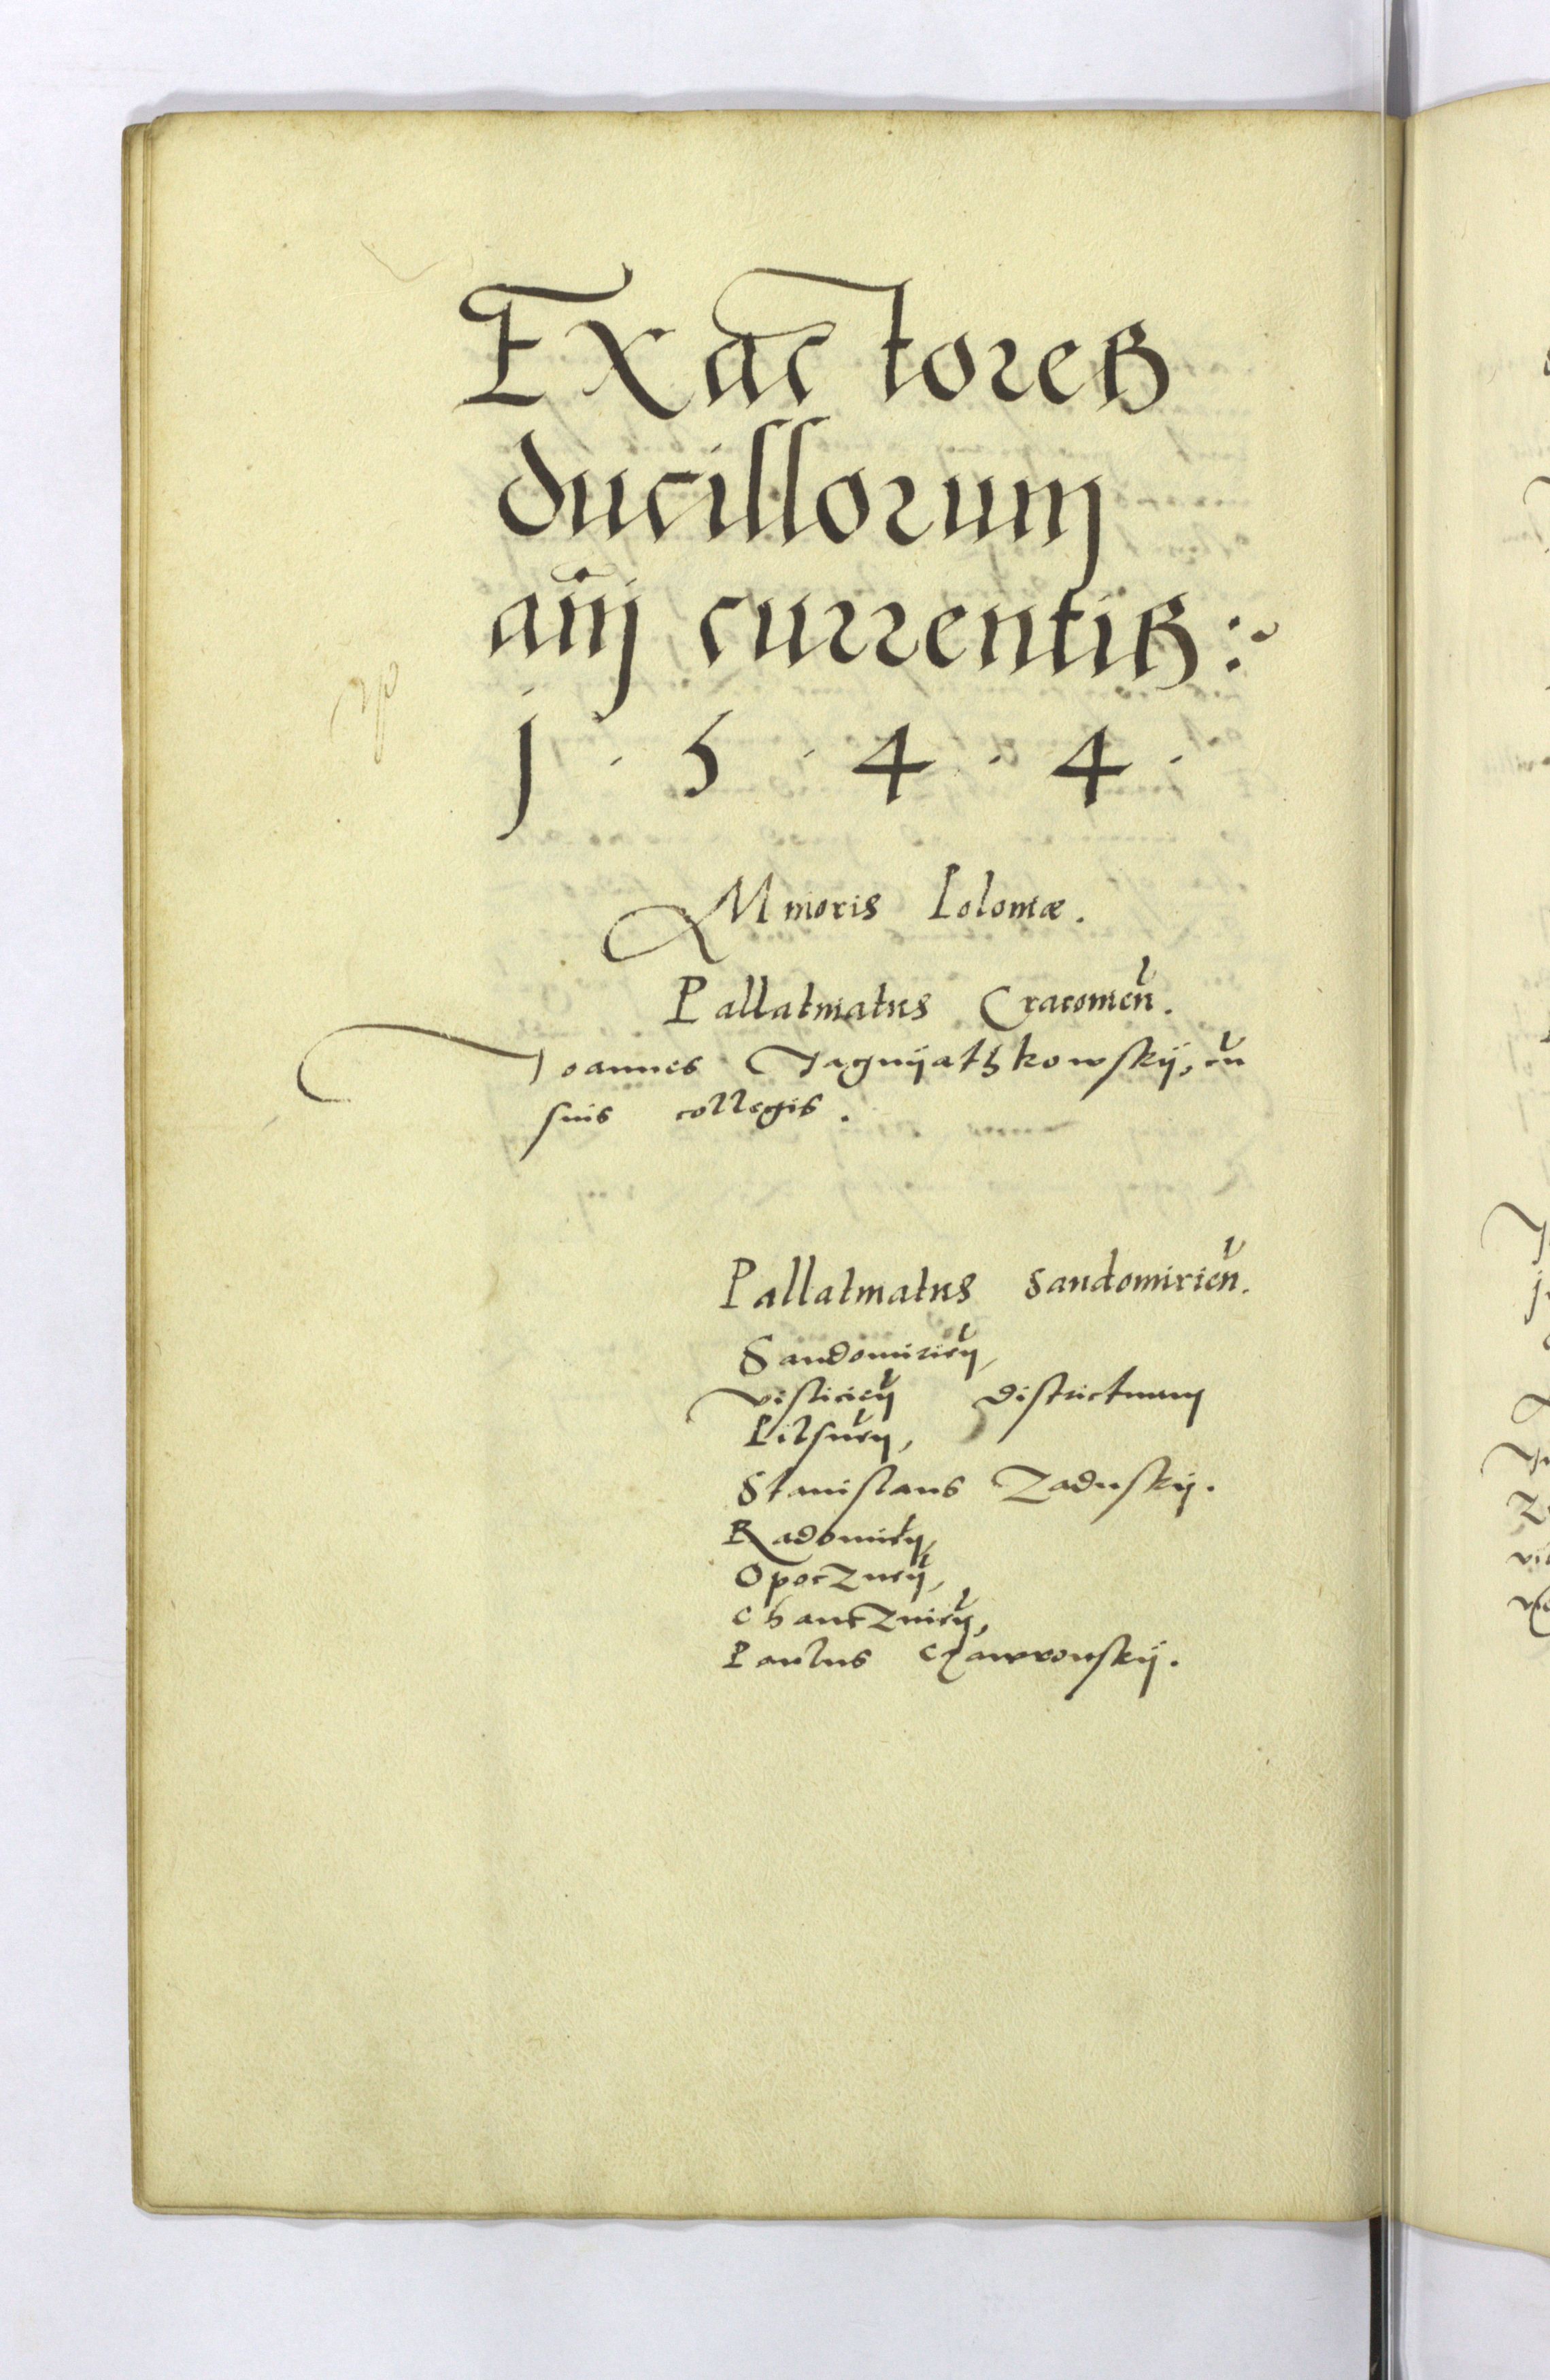 Exactores
ducillorum
anij currentis:
j . 5 . 4 . 4 .
Minoris Poloniæ.
Pallatinatus Cracovien̄.
Joannes Jagnijathkowskij, cū
suis collegis.
Pallatinatus Sandomirien̄.
Sandomirien̄,
Visliciēn districtuum
Pilsnēn,
Stanislaus Zaduskij.
Radomiēn,
Opocznēn,
Chanczniēn,
Paulus Czawronskij.